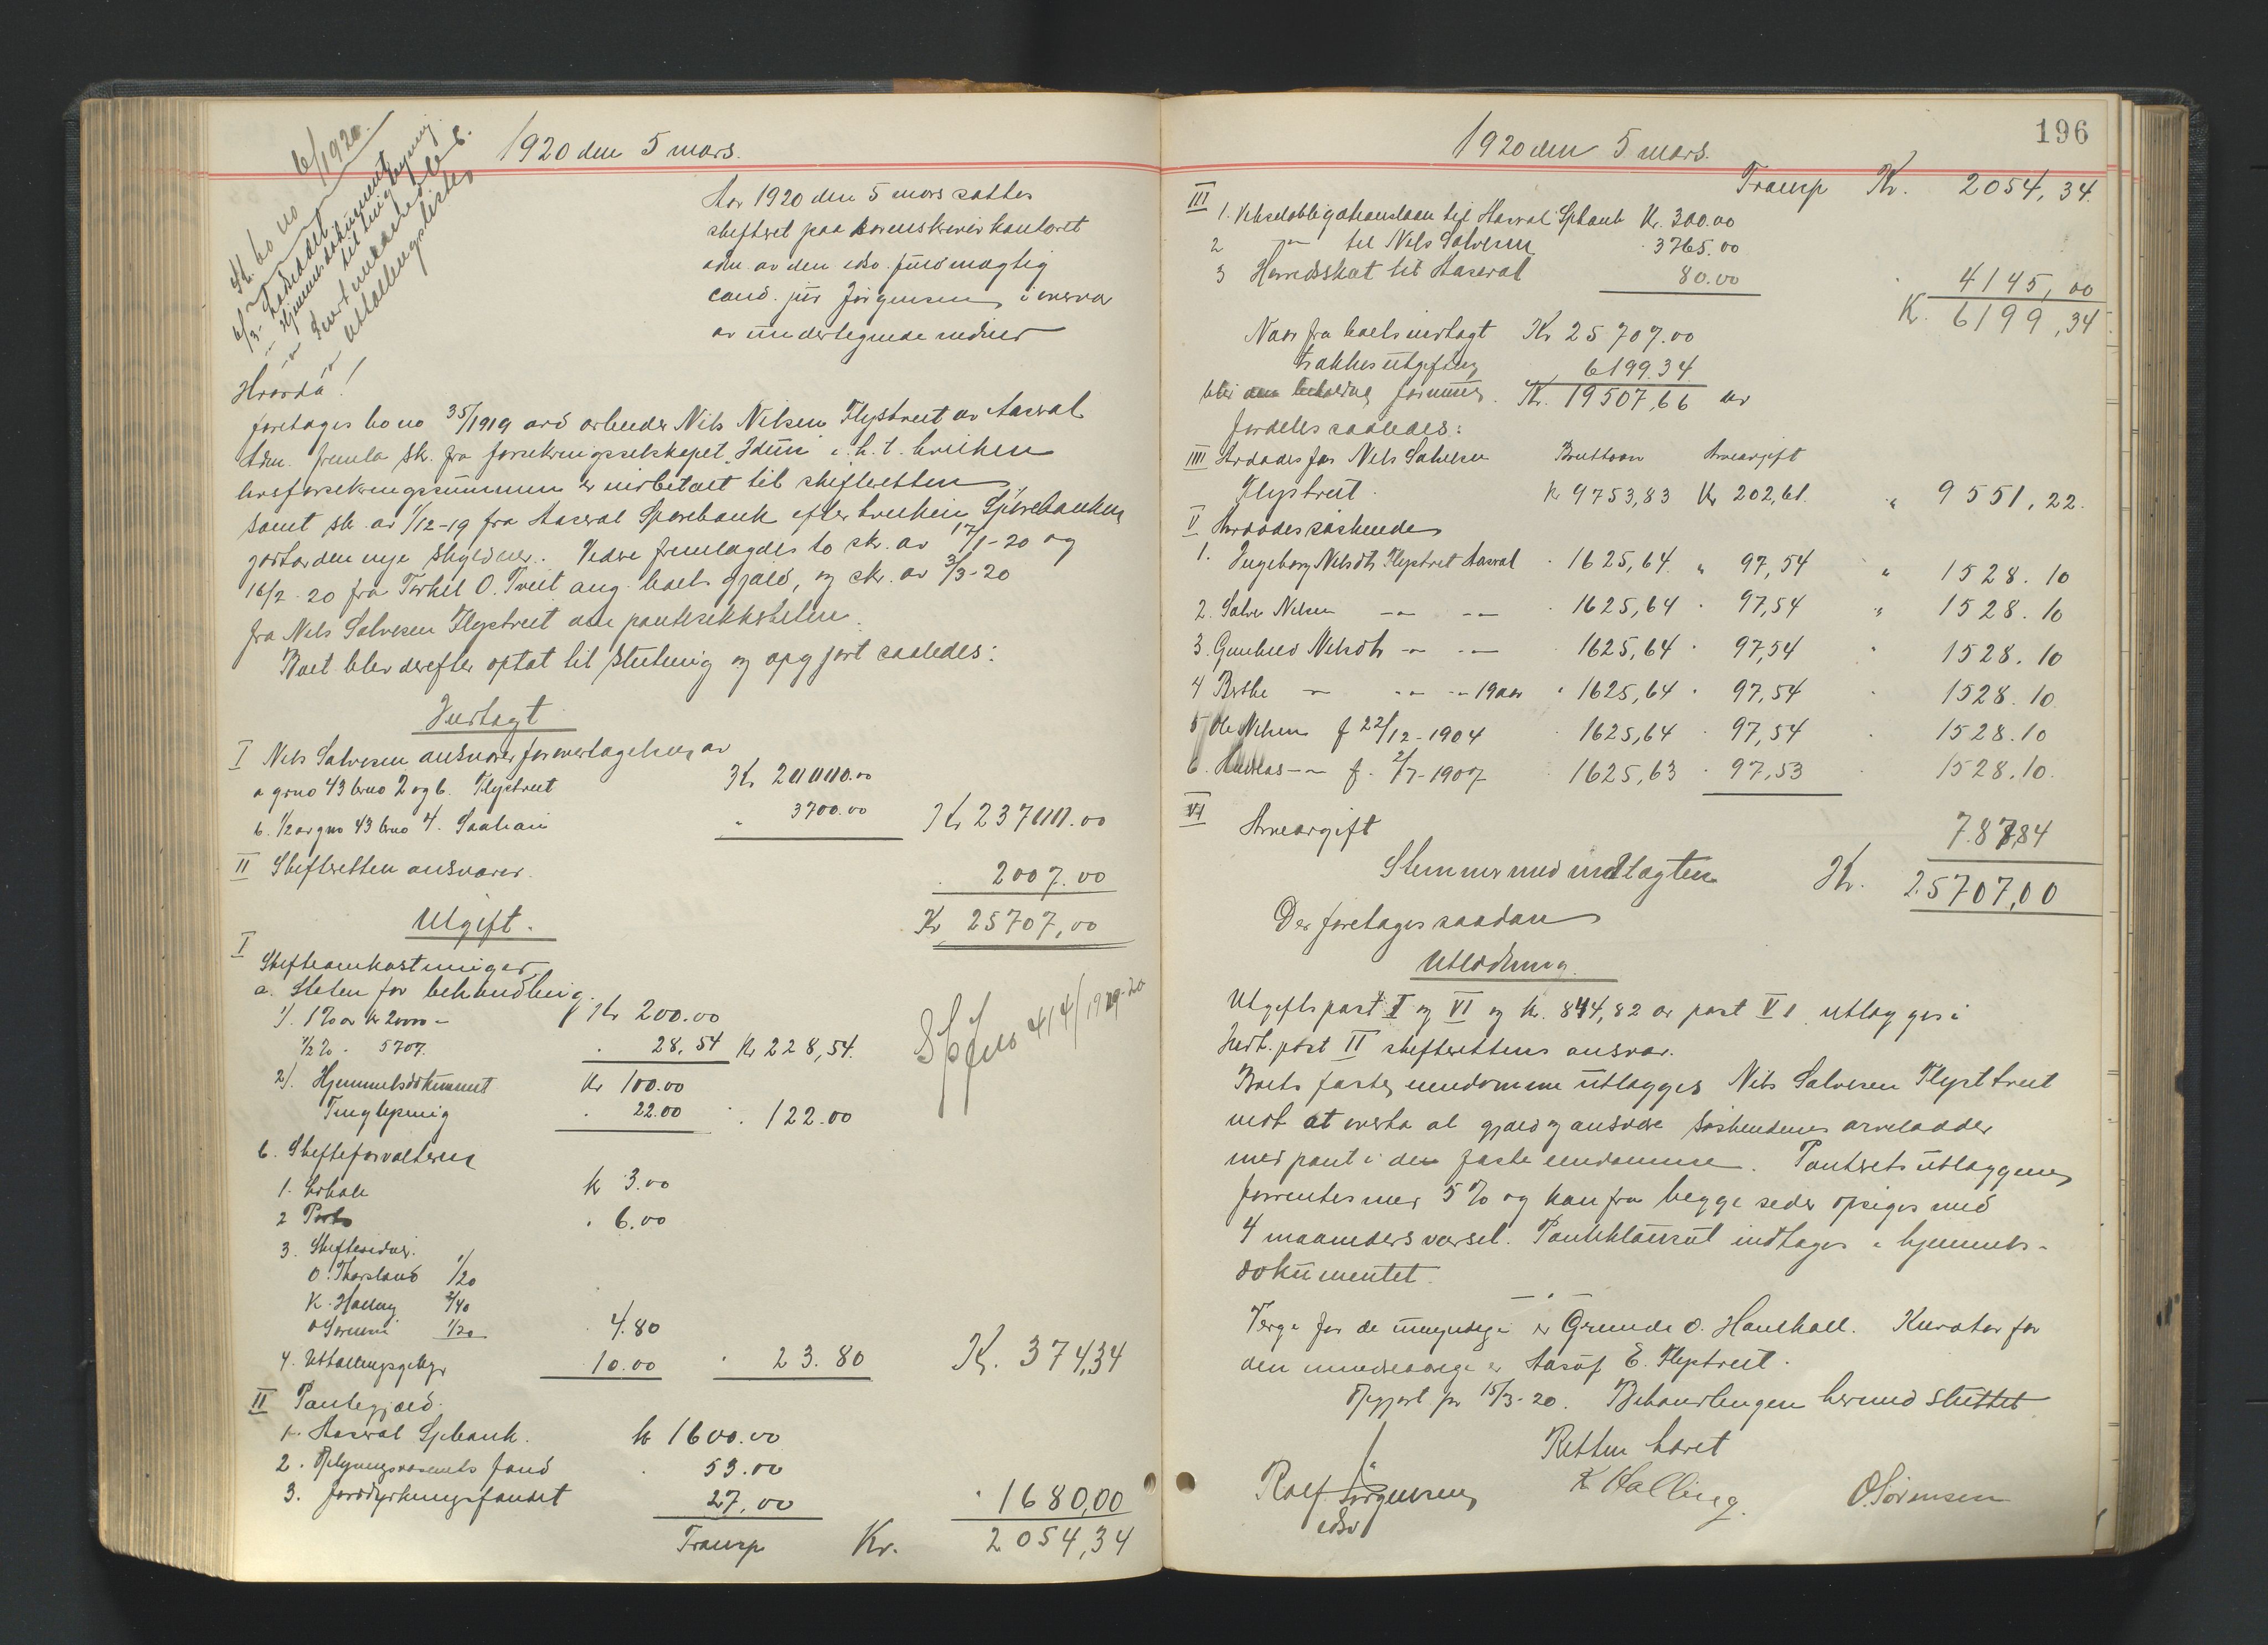 1920 den 5 mars.
St. bo no 6/1920.
Hjemmelsdokument
til tinglysning
Utdelingslister
Aar 1920 den 5 mars sattes
skifteret paa sorenskriverkontoret
adm. av den edsv. fuldmægtig
cand. jur Jørgensen i overvær
av undertegnede vidner
Hvorda!
foretages bo no 35/1919 avd arbeider Nils Nilsen Flystveit av Aaseral
Adm. fremla skr. fra forsikringsselskapet Idun i. h. t. hvilken
livsforsikringssummen er indbetalt til skifteretten
samt skr. av 1/12-19 fra Aaseral Sparebank efter hvilken Sparebanken
godtar den nye skyldner. Videre fremlagdes to skr. av 17/1-20 og
16/2-20 fra Terkel O. Tveit ang. boets gjæld, og skr. av 3/3-20
fra Nils Salvesen Flystveit om pantesikkerheten.
Boet blev derefter optat til slutning og opgjort saaledes:
Indtægt
I Nils Salvesen ansvarer for overtagelsen av
a grno 43 brno 2 og 6. Flystveit Kr 20000.00
b. 1/2 av gno 43 brno 4. " 3700.00 Kr 23700.00
II Skifteretten ansvarer . 2007.00
Kr 25707,00
Utgift.
I Skifteomkostninger
a. Staten for behandling.
1/. 1 % av kr 20000 - Kr 200.00
1/2 % . 5707. . 28,54 Kr 228,54.
2/. Hjemmelsdokument Kr 100.00
Tinglysning . 22.00 . 122.00
Spfno 414/1919-20
b. Skifteforvalteren
1. Lokale k 3.00
2 Porto . 6.00
3. Skiftevidner.
O. Thorsland 1/20
K. Halling 2/40
O Sørensen 1/20 . 4.80
4. Utdelingsgebyr 10.00 . 23.80 K. 374,34
II Pantegjæld.
1. Aaseral Spbank. kr 1600.00
2. Oplysningsvæsenets fond . 53.00
3. Jorddyrkningsfondet 27,00 . 1680,00
Transp Kr. 2054,34
196
1920 den 5 mars.
Transp Kr. 2054,34.
III 1. Vekselobligationslaan til Aaseral Spbank Kr. 300.00
2 -"- til Nils Salvesen . 3765.00
3 Herredsskat til Aaseral 80.00 . 4145,00
K. 6199,34
Naar fra boets indtægt Kr 25707.00
trækkes utgiften 6199.34
blir den beholdne formue Kr. 19507,66 der
fordeles saaledes:
IIII Avdødes far Nils Salvesen Bruttoarv Arveavgift
Flystveit. Kr 9753,83 Kr 202,61. " 9551,22.
V Avdødes søskende
1. Ingeborg Nilsdtr Flystveit Aaseral . 1625,64 " 97,54 " 1528.10
2. Salve Nilsen -"- -"- . 1625,64 . 97,54 " 1528.10
3. Gunhild Nilsdtr -"- -"- . 1625,64 . 97,54 " 1528.10
4 Berthe -"- -"- -"- 19 aar . 1625,64 . 97,54 . 1528.10
5 Ole Nilsen f 22/12-1904 . 1625,64 . 97,54 . 1528.10
6. Andreas -"- f. 2/7-1907 . 1625,63 . 97,53 . 1528.10.
VI Arveavgift 787,84
Stemmer med indtægten Kr. 25707,00
Der foretages saadan
Utlodning.
Utgiftspost I og VI og kr. 844,82 av post VI utlægges i
Indt. post II skifterettens ansvar.
Boets faste eiendomme utlægges Nils Salvesen Flystveit
mot at overta al gjæld og ansvare søskendenes arvelodder
med pant i den faste eiendomme. Panteretsutlæggene
forrentes med 5 % og kan fra begge sider opsiges med
4 maaneders varsel. Panteklausul indtages i hjemmels-
dokumentet.
Verge for de umyndige er Grunde O. Haukaal. Kurator for
den mindreaarige er Aasulf E. Flystveit.
Opgjort pr 15/3-20. Behandlingen hermed sluttet
Retten hævet
Rolf Jørgensen K Halling. O. Sørensen
edsv